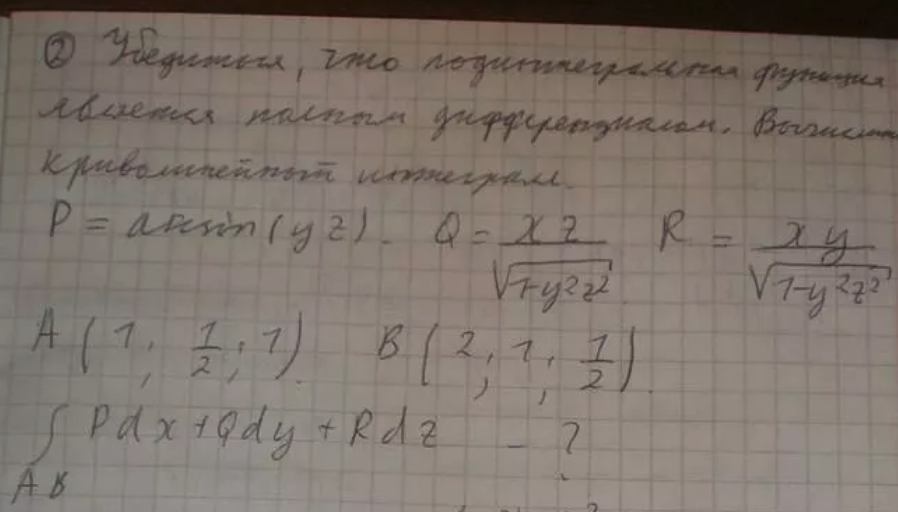 ② Убедиться, что подинтегральная функция
является полным дифференциалом. Вычислить
криволинейный интеграл.
P = arcsin(yz). Q = xz/√(1-y²z²) R = xy/√(1-y²z²)
A(1; 1/2; 1). B(2; 1; 1/2).
∫ Pdx+Qdy+Rdz - ?
AB